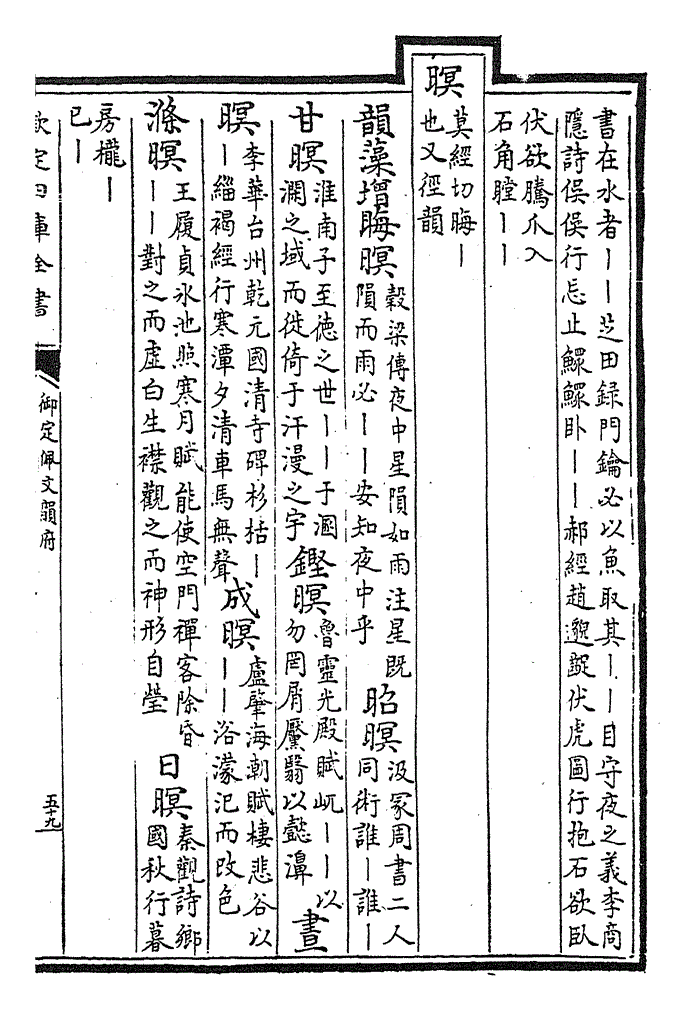 書在水者丨丨芝田録門鑰必以魚取其丨丨目守夜之義李商
隱詩俁俁行忘止鰥鰥卧丨丨郝經趙邈齪伏虎圖行抱石欲卧
伏欲騰爪入
石角瞠丨丨
暝
莫經切晦丨
也又徑韻
韻藻增晦暝
穀梁傳夜中星隕如雨注星既
隕而雨必丨丨安知夜中乎
昭暝
汲冢周書二人
同術誰丨誰丨
甘暝
淮南子至德之世丨丨于溷
澖之域而徙倚于汗漫之宇
鏗暝
魯靈光殿賦屼丨丨以
勿罔屑黶翳以懿濞
晝
暝
李華台州乾元國清寺碑杉栝丨
丨緇褐經行寒潭夕清車馬無聲
成暝
盧肇海潮賦棲悲谷以
丨丨浴濛汜而改色
滌暝
王履貞氷池照寒月賦能使空門禪客除昏
丨丨對之而虛白生襟觀之而神形自瑩
日暝
秦觀詩鄉
國秋行暮
房櫳丨
已丨
欽定四庫全書
御定佩文韻府
五十九